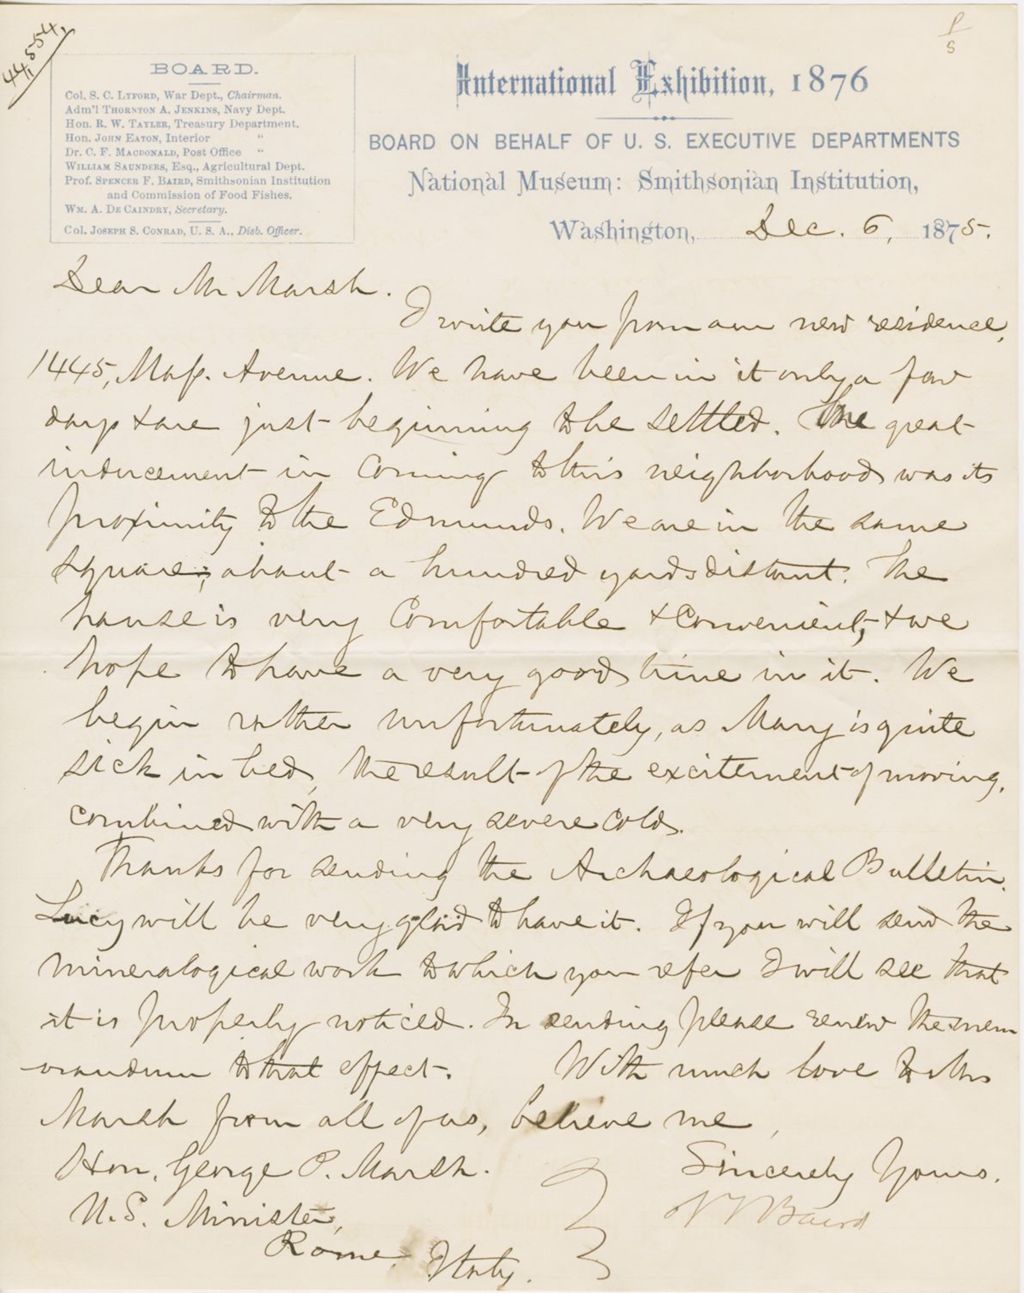 44,554.
P/s
BOARD.
Col. S. C. Lyford, War Dept., Chairman.
Adm'l Thornton A. Jenkins, Navy Dept.
Hon. R. W. Tayler, Treasury Department.
Hon. John Eaton, Interior "
Dr. C. F. Macdonald, Post Office "
William Saunders, Esq., Agricultural Dept.
Prof. Spencer F. Baird, Smithsonian Institution
and Commission of Food Fishes.
Wm. A. De Caindry, Secretary.
Col. Joseph S. Conrad, U. S. A., Disb. Officer.
International Exhibition, 1876
BOARD ON BEHALF OF U. S. EXECUTIVE DEPARTMENTS
National Museum: Smithsonian Institution,
Washington, Dec. 6, 1875.
Dear Mr Marsh.
I write you from our new residence,
1445, Mass. Avenue. We have been in it only a few
days & are just beginning to be settled. The great
inducement in coming to this neighborhood was its
proximity to the Edmunds. We are in the same
square, about a hundred yards distant. The
house is very comfortable & convenient, & we
hope to have a very good time in it. We
begin rather unfortunately, as Mary is quite
sick in bed, the result of the excitement of moving,
combined with a very severe cold.
Thanks for sending the Archaeological Bulletin.
Lucy will be very glad to have it. If you will send the
mineralogical work to which you refer I will see that
it is properly noticed. In sending please renew the mem
orandum to that effect. With much love to Mrs
Marsh from all of us, believe me,
Sincerely Yours.
S F Baird
Hon. George P. Marsh.
U.S. Minister,
Rome. Italy.